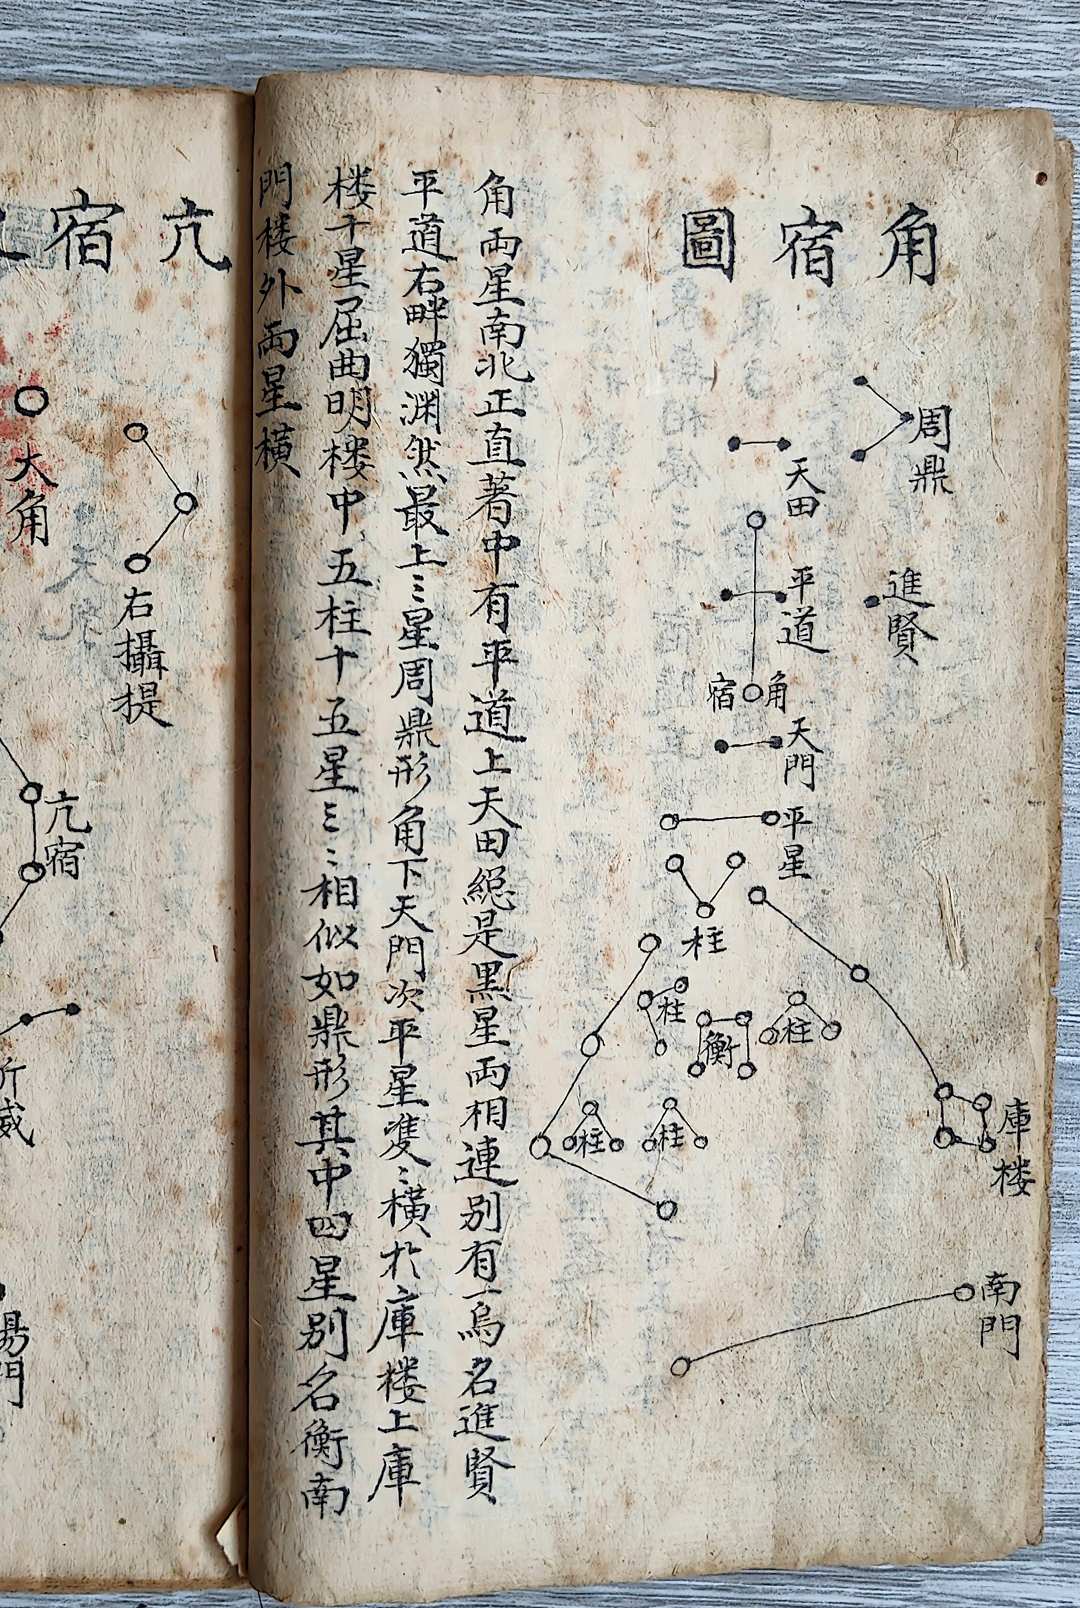 角宿圖
周鼎
天田
進賢
平道
角宿
天門
平星
柱
柱
衡
柱
柱
柱
庫楼
南門
角両星南北正直著中有平道上天田緫是黒星両相連別有一烏名進賢
平道右畔獨渊然最上三星周鼎形角下天門次平星隻〻橫於庫楼上庫
楼十星屈曲明楼中五柱十五星三〻相似如鼎形其中四星別名衡南
門楼外両星橫
亢宿
右攝提
大角
亢宿
威
門